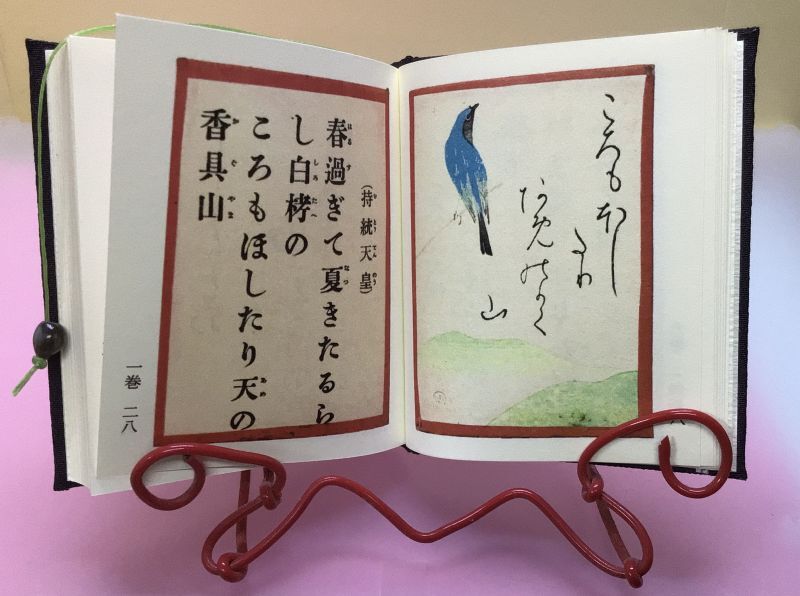 ころもほし
たり
あめのかく
山
(持統天皇)
春過ぎて夏きたるら
し白栲の
ころもほしたり天の
香具山
一巻 二八